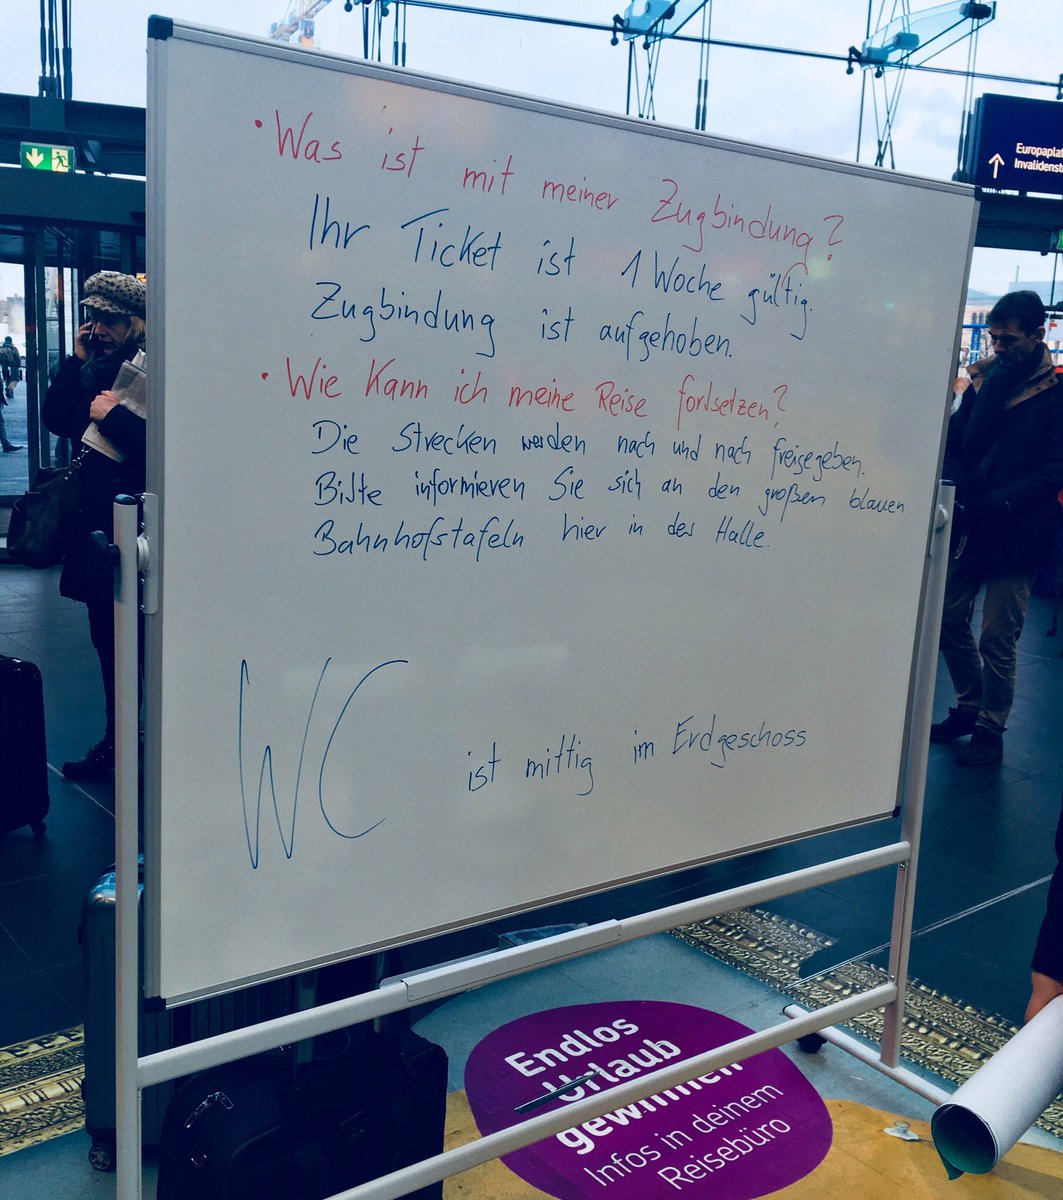 • Was ist mit meiner Zugbindung?
Ihr Ticket ist 1 Woche gültig.
Zugbindung ist aufgehoben.
• Wie kann ich meine Reise fortsetzen?
Die Strecken werden nach und nach freigegeben.
Bitte informieren Sie sich an den großen blauen
Bahnhofstafeln hier in der Halle.
WC ist mittig im Erdgeschoss
Europaplat
Invalidenst
Endlos
Urlaub
gewinnen
Infos in deinem
Reisebüro